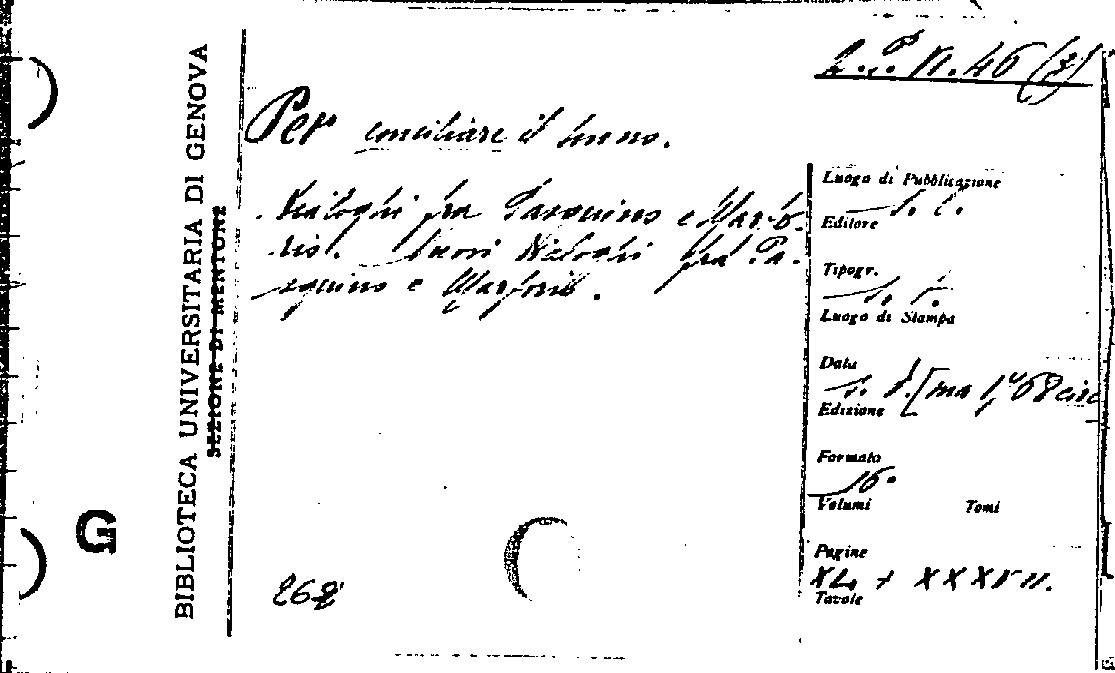 BIBLIOTECA UNIVERSITARIA DI GENOVA
SEZIONE DI MENTONE
G
N. 46 (3)
Per conciliare il sonno.
Dialoghi fra Pasquino e Marfo-
rio. Nuovi Dialoghi fra Pa-
squino e Marforio.
262
Luogo di Pubblicazione
s. l.
Editore
Tipogr.
s. t.
Luogo di Stampa
Data
s. d. [ma
Edizione
Formato
16°
Volumi Tomi
Pagine
XL + XXXVII.
Tavole